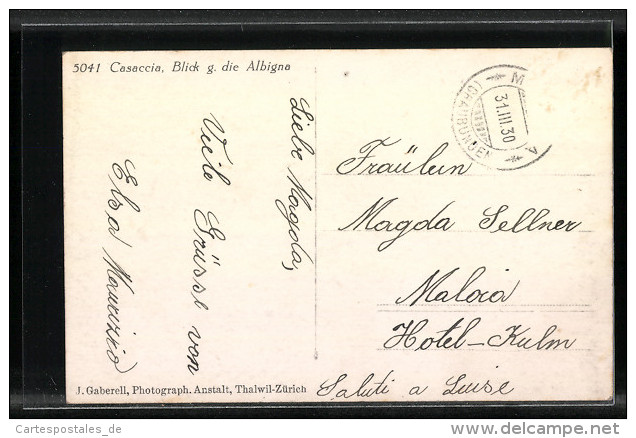 5041 Casaccia, Blick g. die Albigna
Liebe Magda,
Viele Grüsse von
Elsa
31.III.30
(GRAUBÜNDEN)
Fräulein
Magda Sellner
Maloia
Hotel-Kulm
Saluti a Luise
J. Gaberell, Photograph. Anstalt, Thalwil-Zürich
Cartespostales_de
www.delcampe.net